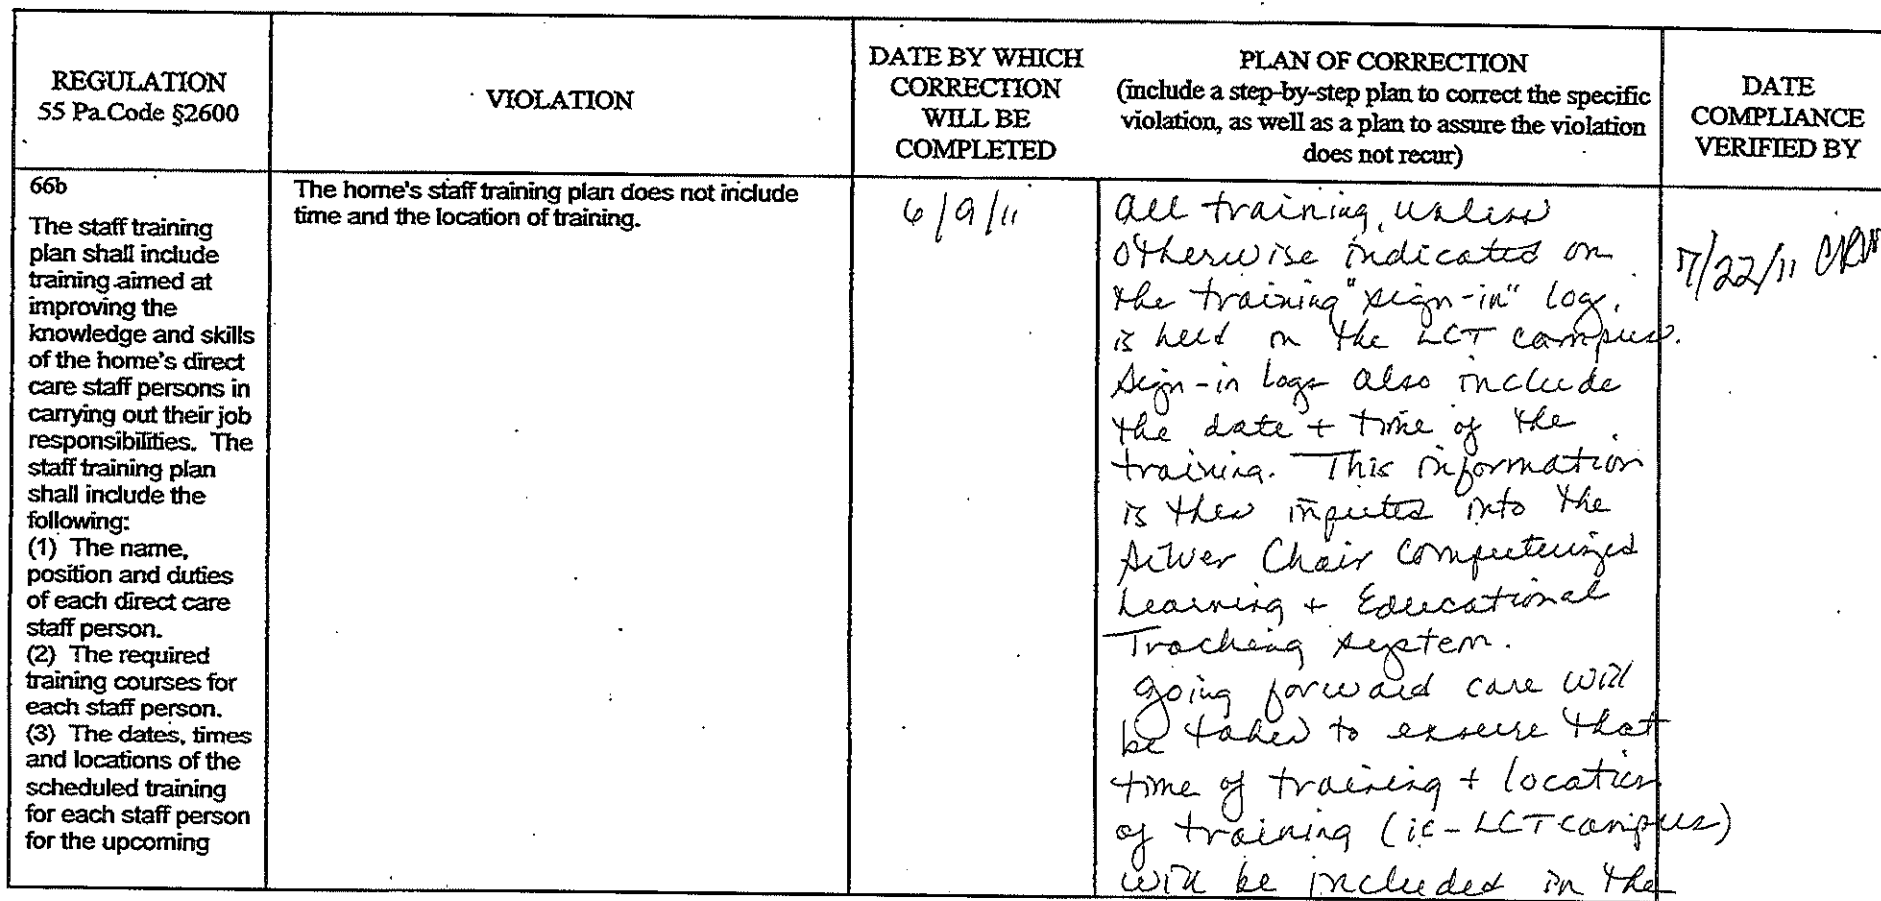 REGULATION
55 Pa.Code §2600
VIOLATION
DATE BY WHICH
CORRECTION
WILL BE
COMPLETED
PLAN OF CORRECTION
(include a step-by-step plan to correct the specific
violation, as well as a plan to assure the violation
does not recur)
DATE
COMPLIANCE
VERIFIED BY
66b
The staff training
plan shall include
training aimed at
improving the
knowledge and skills
of the home's direct
care staff persons in
carrying out their job
responsibilities. The
staff training plan
shall include the
following:
(1) The name,
position and duties
of each direct care
staff person.
(2) The required
training courses for
each staff person.
(3) The dates, times
and locations of the
scheduled training
for each staff person
for the upcoming
The home's staff training plan does not include
time and the location of training.
6/9/11
All training, unless
otherwise indicated on
the training "sign-in" log,
is held on the LCT campus.
Sign-in logs also include
the date + time of the
training. This information
is then inputed into the
Silver Chair Computerized
Learning + Educational
Tracking system.
Going forward care will
be taken to ensure that
time of training + location
of training (ie - LCT campus)
will be included in the
7/22/11